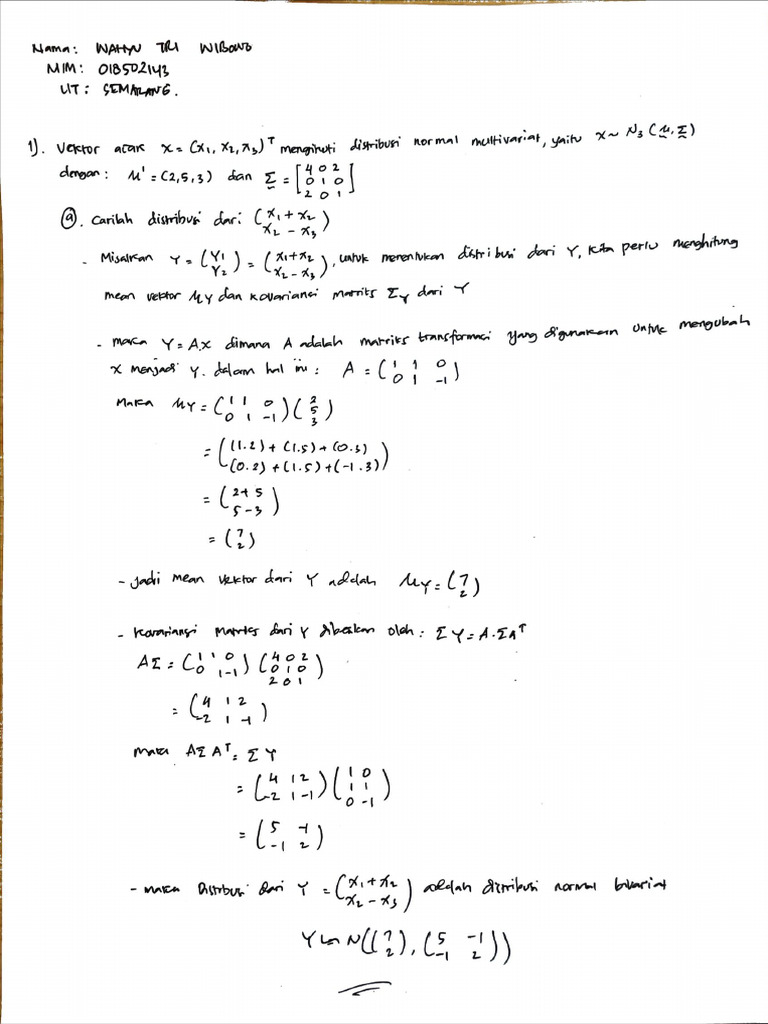 Nama: WAHYU TRI WIBOWO
NIM: 018502143
UT: SEMARANG.
1). Vektor acak x = (x₁, x₂, x₃)ᵀ mengikuti distribusi normal multivariat, yaitu x ~ N₃ (μ, Σ)
dengan: μ' = (2,5,3) dan Σ = [4 0 2; 0 1 0; 2 0 1]
(a). Carilah distribusi dari: (x₁ + x₂; x₂ - x₃)
- Misalkan Y = (Y₁; Y₂) = (x₁ + x₂; x₂ - x₃), untuk menentukan distribusi dari Y, kita perlu menghitung
mean vektor μY dan kovariansi matriks Σ_Y dari Y
- maka Y = A.x dimana A adalah matriks transformasi yang digunakan untuk mengubah
x menjadi Y. dalam hal ini: A = (1 1 0; 0 1 -1)
Maka μY = (1 1 0; 0 1 -1) (2; 5; 3)
= ((1.2) + (1.5) + (0.3); (0.2) + (1.5) + (-1.3))
= (2+5; 5-3)
= (7; 2)
- jadi mean vektor dari Y adalah μY = (7; 2)
- kovariansi matriks dari Y diberikan oleh: ΣY = A.ΣAᵀ
AΣ = (1 1 0; 0 1 -1) (4 0 2; 0 1 0; 2 0 1)
= (4 1 2; -2 1 -1)
maka AΣAᵀ = ΣY
= (4 1 2; -2 1 -1) (1 0; 1 1; 0 -1)
= (5 -1; -1 2)
- maka Distribusi dari Y = (x₁ + x₂; x₂ - x₃) adalah distribusi normal bivariat
Y ~ N((7; 2), (5 -1; -1 2))